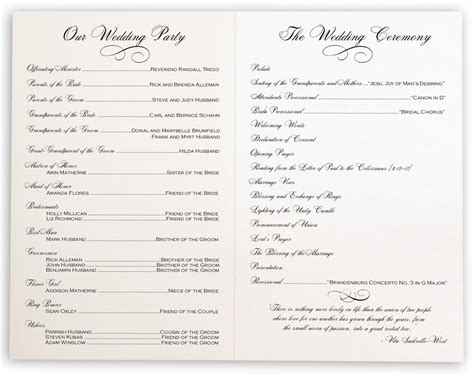 Our Wedding Party
Officiating Minister REVEREND RANDALL TREGO
Parents of the Bride RICK AND BRENDA ALLEMAN
Parents of the Groom STEVE AND JUDY HUSBAND
Grandparents of the Bride CAROL AND BERNARD SMITH
Grandparents of the Groom DONAL AND MARYBELLE BRUMFIELD
FRANK AND MYRNA HUSBAND
Great-Grandparent of the Groom HILDA HUSBAND
Matron of Honor
ARIN MATHERNE SISTER OF THE BRIDE
Maid of Honor
AMANDA FLORES FRIEND OF THE BRIDE
Bridesmaids
HOLLY MILLICAN FRIEND OF THE BRIDE
LIZ RICHMOND FRIEND OF THE BRIDE
Best Man
MARK HUSBAND BROTHER OF THE GROOM
Groomsmen
RICK ALLEMAN BROTHER OF THE BRIDE
JOHN HUSBAND BROTHER OF THE GROOM
BENJAMIN HUSBAND BROTHER OF THE GROOM
Flower Girl
ADDISON MATHERNE NIECE OF THE BRIDE
Ring Bearer
SEAN OXLEY FRIEND OF THE COUPLE
Ushers
PARRISH HUSBAND COUSIN OF THE GROOM
STEVEN KUBAS FRIEND OF THE GROOM
ADAM WINSLOW FRIEND OF THE GROOM
The Wedding Ceremony
Prelude
Seating of the Grandparents and Mothers "JESU, JOY OF MAN'S DESIRING"
Attendants Processional "CANON IN D"
Bridal Processional "BRIDAL CHORUS"
Welcoming Words
Declaration of Consent
Opening Prayer
Reading from the Letter of Paul to the Colossians (3:12-17)
Marriage Vows
Blessing and Exchange of Rings
Lighting of the Unity Candle
Pronouncement of Union
Lord's Prayer
Blessing of the Marriage
Presentation
Recessional "BRANDENBURG CONCERTO NO. 3 IN G MAJOR"
There is nothing more lovely in life than the union of two people
whose love for one another has grown through the years,
from the small acorn of passion, into a great rooted tree.
- Vita Sackville-West